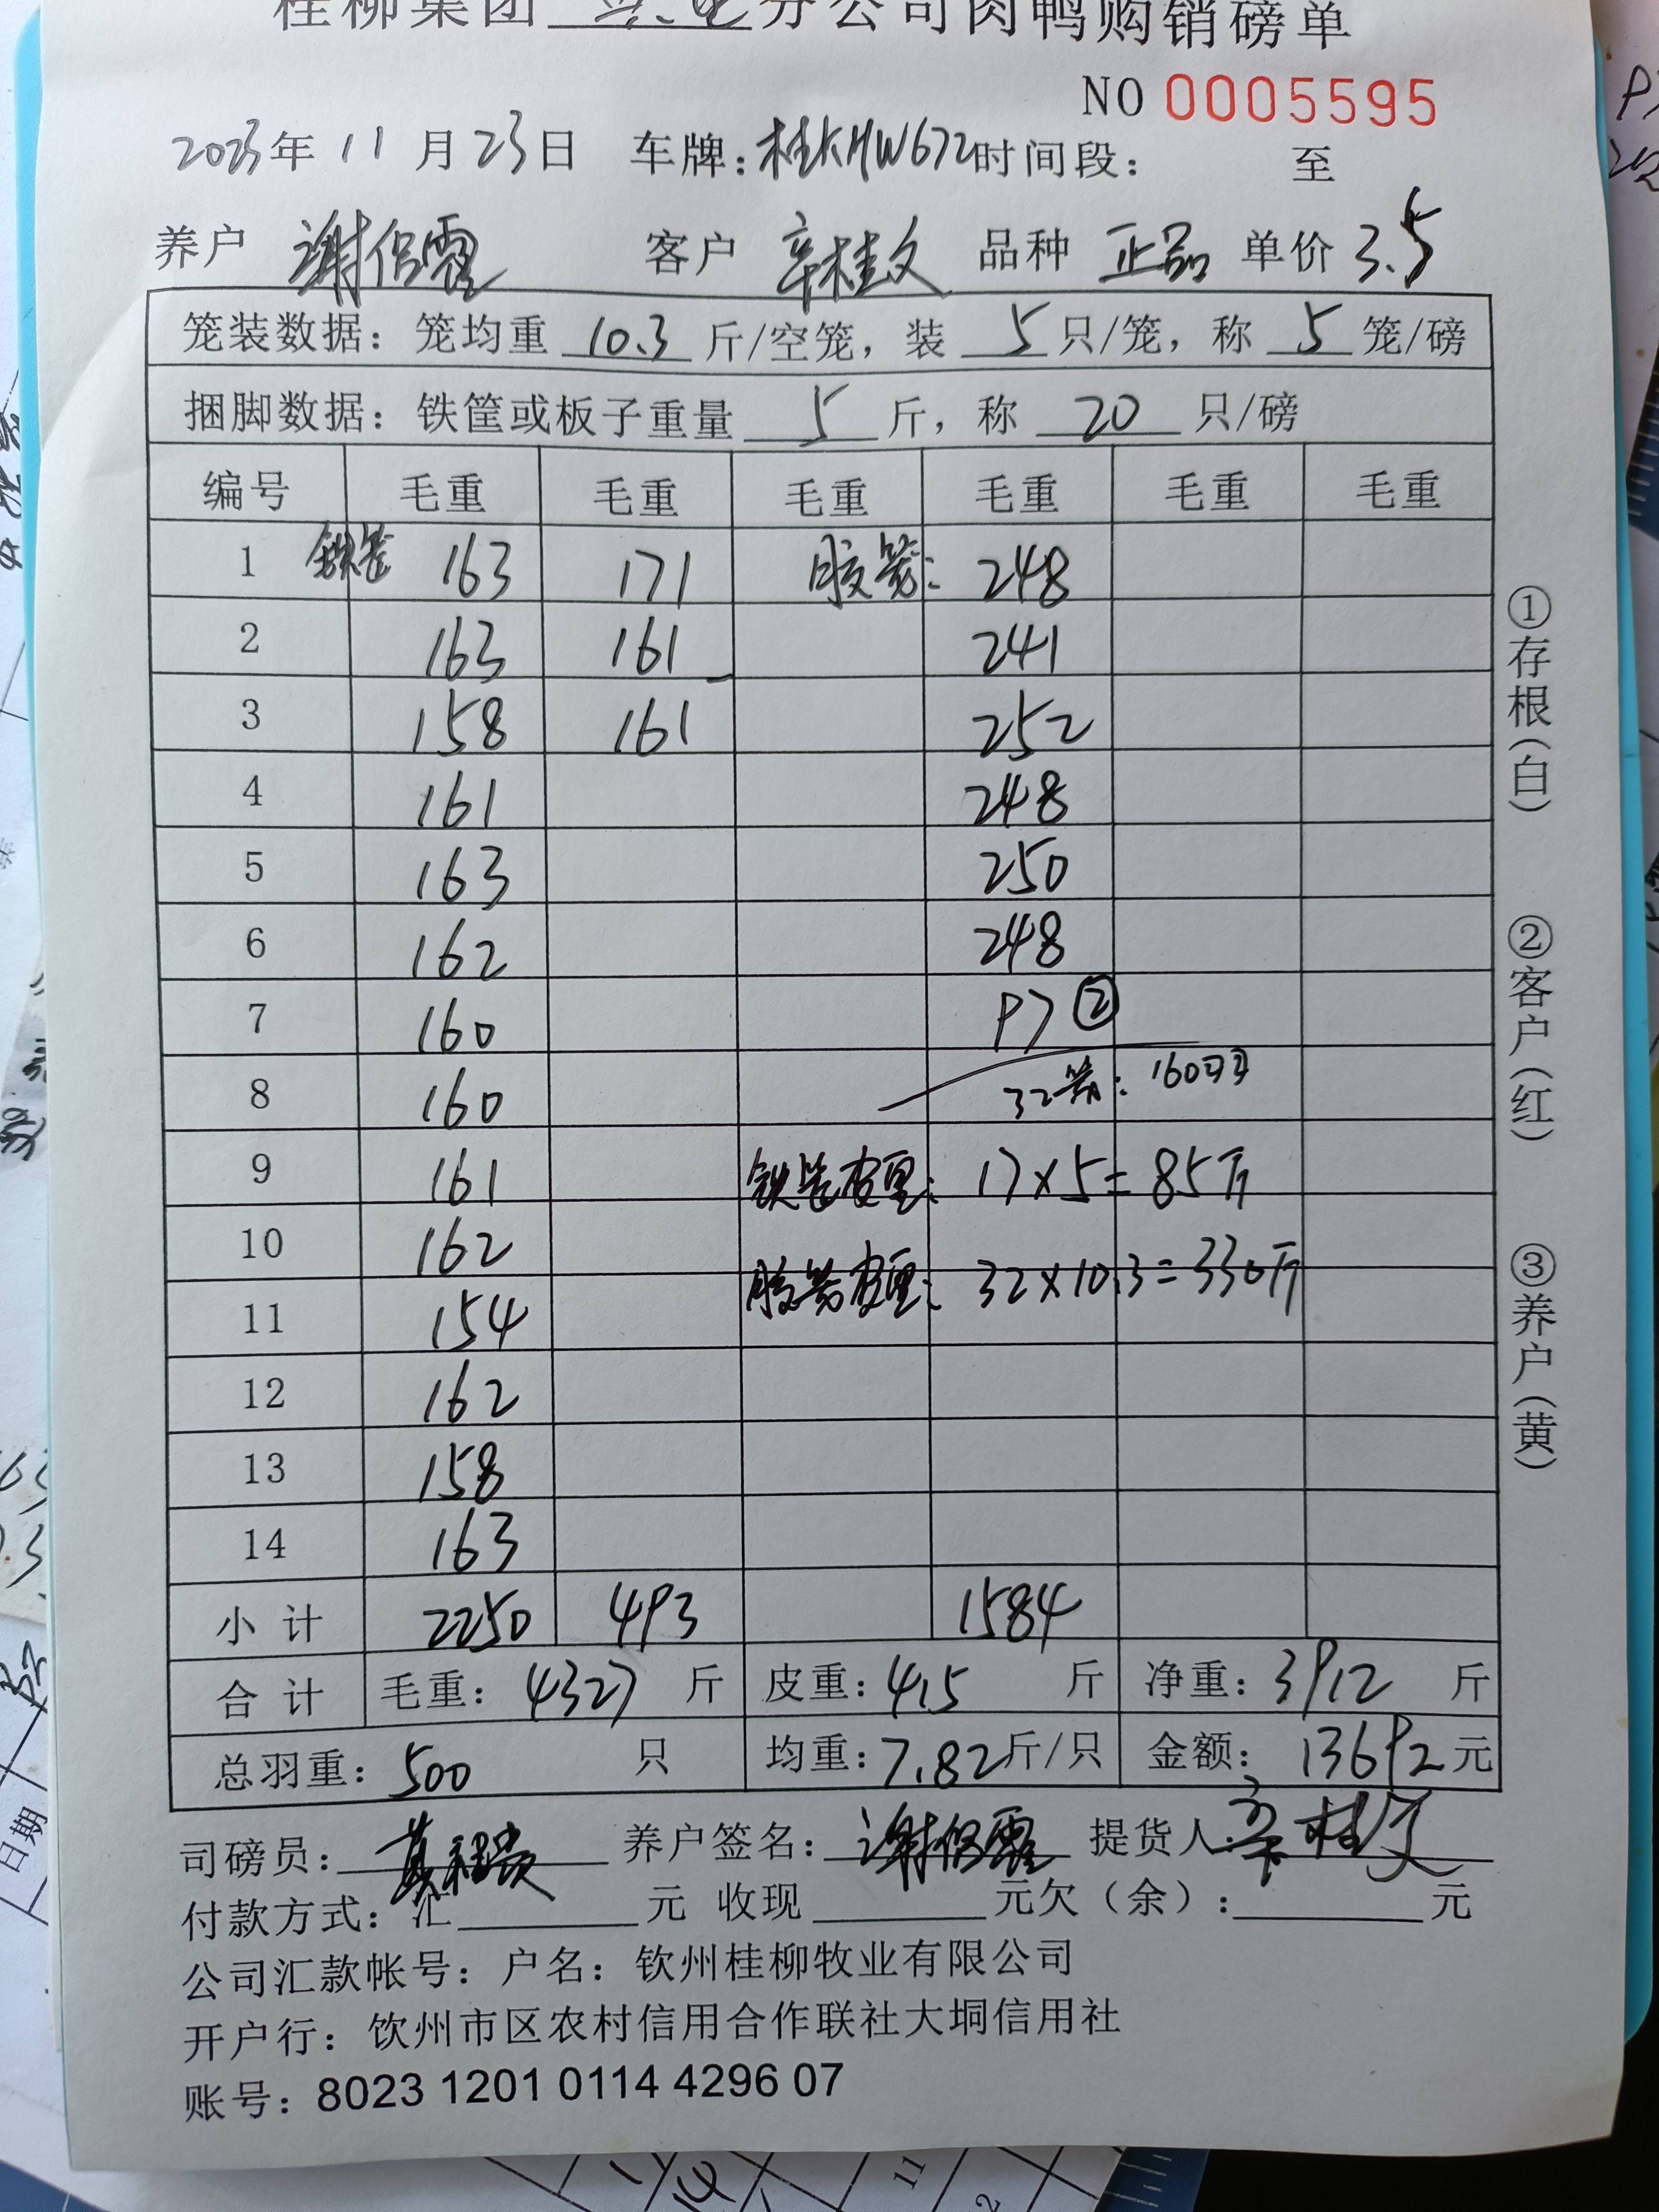 桂柳集团 分公司肉鸭购销磅单
NO 0005595
2023年 11 月 23日 车牌:桂KHW672 时间段: 至
养户 谢保霞 客户 辛桂文 品种 正品 单价 3.5
笼装数据: 笼均重 10.3 斤/空笼, 装 5 只/笼, 称 5 笼/磅
捆脚数据: 铁筐或板子重量 5 斤, 称 20 只/磅
编号 毛重 毛重 毛重 毛重 毛重 毛重
1 铁筐 163 171 胶笼: 248
2 163 161 241
3 158 161 252
4 161 248
5 163 250
6 162 248
7 160 97 ②
8 160 32笼: 160羽
9 161 铁筐皮重: 17×5=85斤
10 162 胶笼皮重: 32×10.3=330斤
11 154
12 162
13 158
14 163
小 计 2250 493 1584
合 计 毛重: 4327 斤 皮重: 415 斤 净重: 3912 斤
总羽重: 500 只 均重: 7.82 斤/只 金额: 13692 元
司磅员: 养户签名: 谢保霞 提货人: 辛桂文
付款方式: 汇 元 收现 元欠(余): 元
公司汇款帐号: 户名: 钦州桂柳牧业有限公司
开户行: 钦州市区农村信用合作联社大垌信用社
账号: 8023 1201 0114 4296 07
①存根(白)
②客户(红)
③养户(黄)
日期